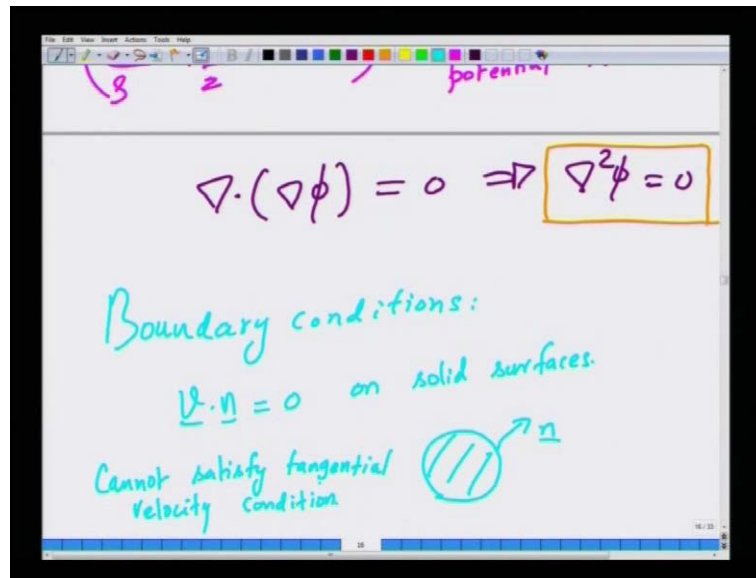 File Edit View Insert Actions Tools Help
B I
ρ 2 potential
∇·(∇φ) = 0 ⇒ ∇²φ = 0
Boundary conditions:
v·n = 0 on solid surfaces.
n
Cannot satisfy tangential
velocity condition
16 / 33
16